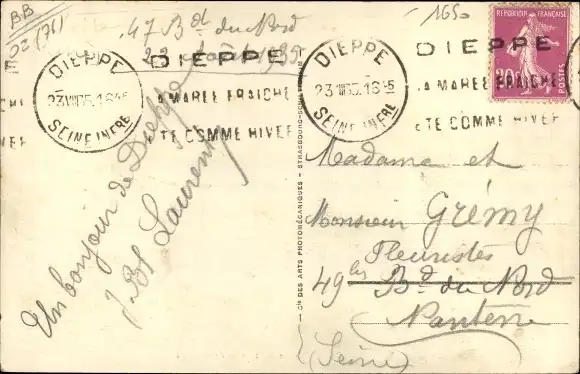 BB
02 (76)
47 Bd du Nord
22 Août 1935
1650
REPUBLIQUE FRANÇAISE
20c
POSTES
DIEPPE
23 VIII 35.16 45
SEINE INFRE
DIEPPE
LA MAREE FRAICHE
ETE COMME HIVER
DIEPPE
23 VIII 35.16 45
SEINE INFRE
DIEPPE
LA MAREE FRAICHE
ETE COMME HIVER
Un bonjour de Dieppe
Laurent
CIE DES ARTS PHOTOMÉCANIQUES - STRASBOURG-SCHILTIGHEIM
Madame et
Monsieur Grémy
Fleuristes
49 bis Bd du Nord
Nanterre
(Seine)